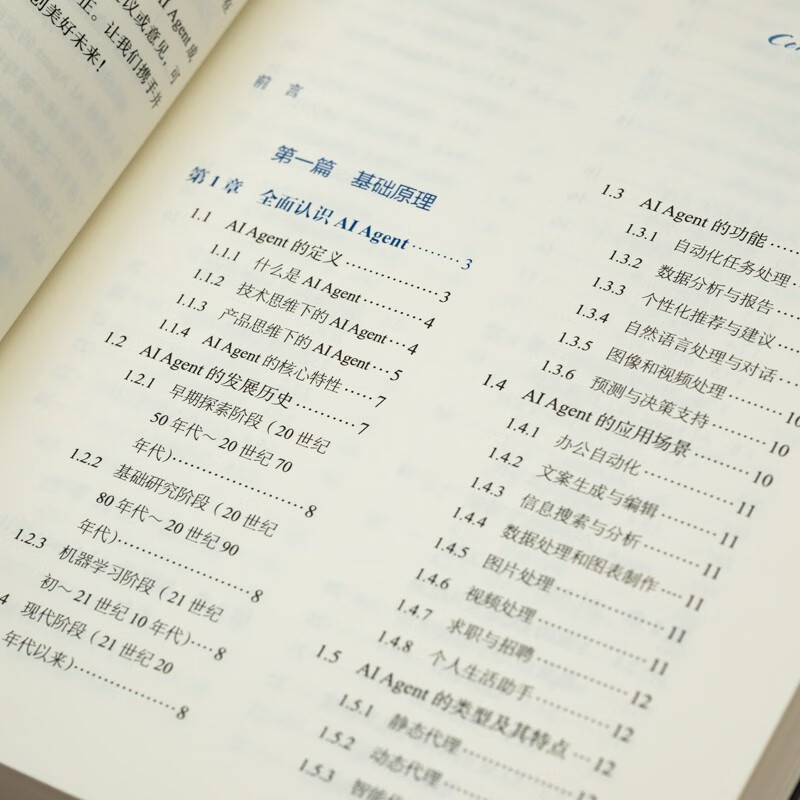 AI Agent 成
议或意见，可
正。让我们携手并
创美好未来！
前 言
第一篇 基础原理
第 1 章 全面认识 AI Agent ········ 3
1.1 AI Agent 的定义 ·············· 3
1.1.1 什么是 AI Agent ·········· 4
1.1.2 技术思维下的 AI Agent ··· 4
1.1.3 产品思维下的 AI Agent ··· 5
1.1.4 AI Agent 的核心特性 ····· 7
1.2 AI Agent 的发展历史 ·········· 7
1.2.1 早期探索阶段（20 世纪
50 年代～ 20 世纪 70
年代） ···················· 8
1.2.2 基础研究阶段（20 世纪
80 年代～ 20 世纪 90
年代） ···················· 8
1.2.3 机器学习阶段（21 世纪
初～ 21 世纪 10 年代） ···· 8
4 现代阶段（21 世纪 20
年代以来） ················ 8
1.3 AI Agent 的功能 ·········
1.3.1 自动化任务处理 ···
1.3.2 数据分析与报告 ····
1.3.3 个性化推荐与建议 ···
1.3.4 自然语言处理与对话 ···
1.3.5 图像和视频处理 ········· 10
1.3.6 预测与决策支持 ········· 10
1.4 AI Agent 的应用场景 ········· 10
1.4.1 办公自动化 ············· 11
1.4.2 文案生成与编辑 ········· 11
1.4.3 信息搜索与分析 ········· 11
1.4.4 数据处理和图表制作 ····· 11
1.4.5 图片处理 ··············· 11
1.4.6 视频处理 ··············· 11
1.4.7 求职与招聘 ············· 12
1.4.8 个人生活助手 ··········· 12
1.5 AI Agent 的类型及其特点 ···· 12
1.5.1 静态代理 ···············
1.5.2 动态代理 ···············
1.5.3 智能